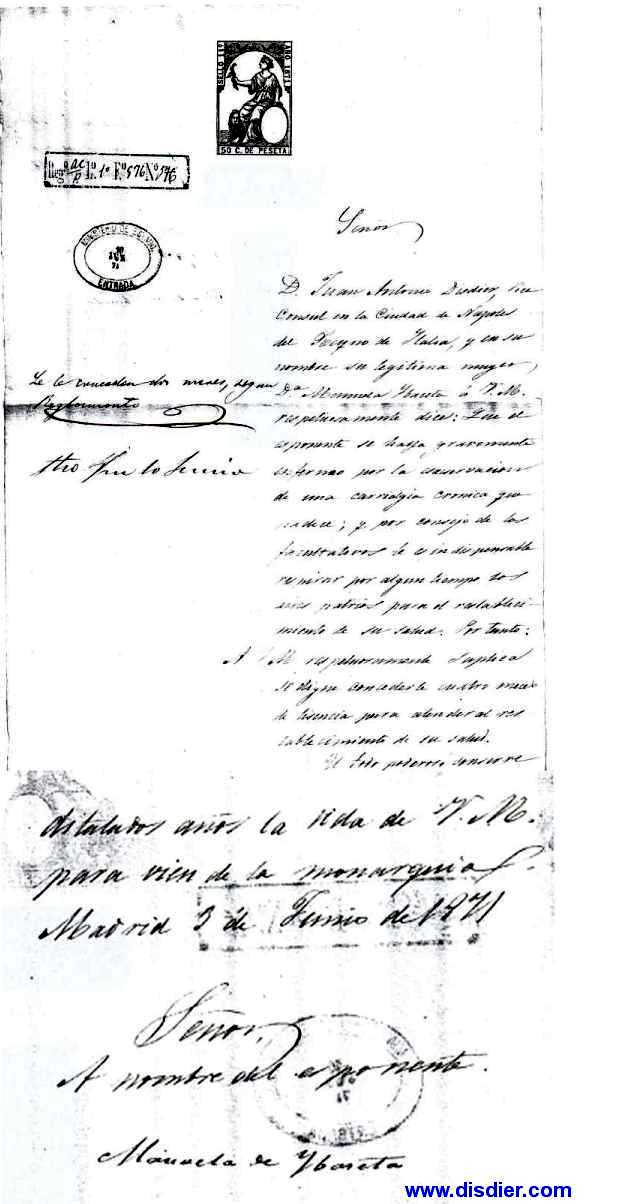 SELLO 11º
AÑO 1871
50 C. DE PESETA
Lº 1º Fº 576 Nº 176
MINISTERIO DE ESTADO
ENTRADA
Señor
D. Juan Antonio Disdier, Vice
Consul en la Ciudad de Napoles
del Reyno de Italia, y en su
nombre su legitima muger,
Dª Manuela Ybaseta á V. M.
respetuosamente dice: Que el
esponente se halla gravemente
enfermo por la
de una cronica que
padece; y por consejo de los
facultativos le es indispensable
respirar por algun tiempo los
aires patrios para el restableci-
miento de su salud. Por tanto:
A V. M. respetuosamente suplica
se digne concederle cuatro meses
de licencia para atender al res
tablecimiento de su salud.
El todo poderoso conserve
Le le conceden dos meses, segun
Reglamento
dilatados años la vida de V. M.
para vien de la monarquia.
Madrid 3 de Junio de 1871
Señor,
A nombre del esponente.
Manuela de Ybaseta
www.disdier.com